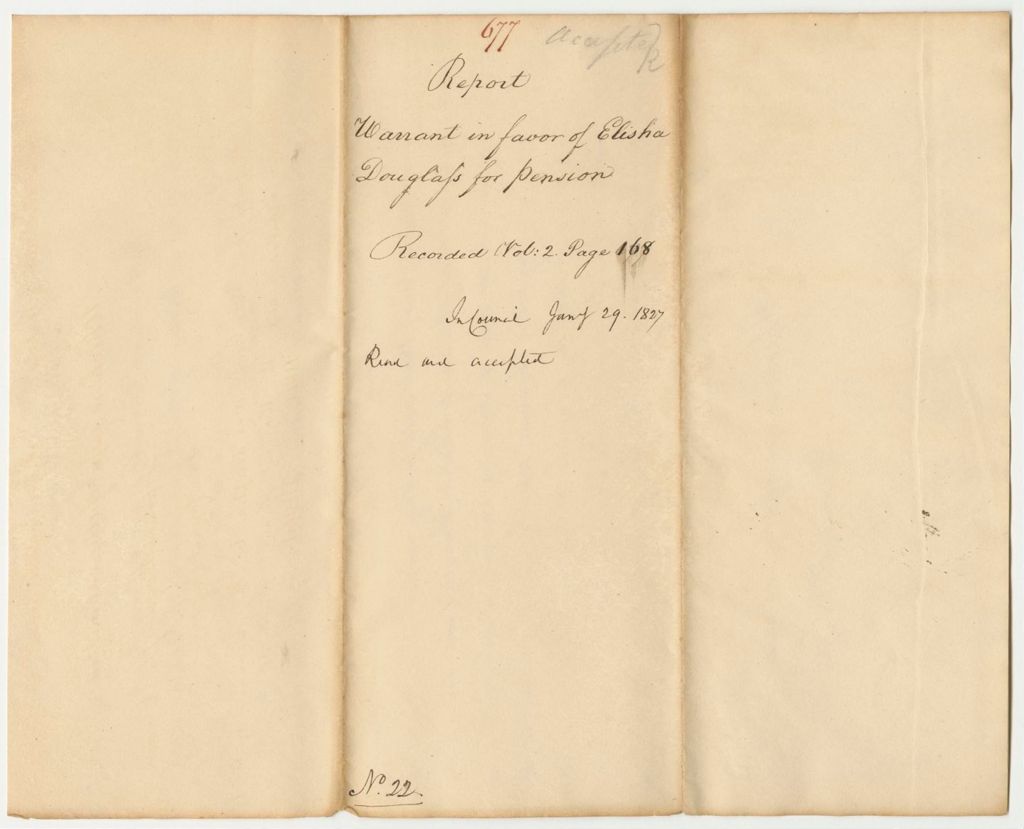 677 accepted
Report
Warrant in favor of Elisha
Douglaſs for pension
Recorded Vol: 2. Page 168
In Council Jany 29. 1827
Read and accepted
No. 22.